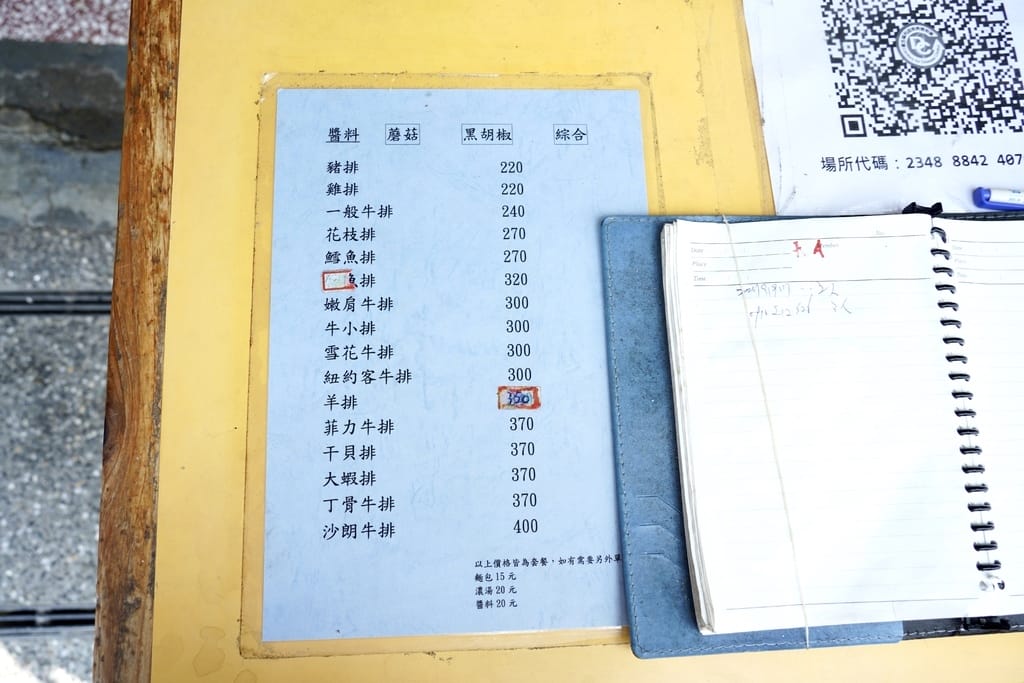 醬料 蘑菇 黑胡椒 綜合
豬排 220
雞排 220
一般牛排 240
花枝排 270
鱈魚排 270
魚排 320
嫩肩牛排 300
牛小排 300
雪花牛排 300
紐約客牛排 300
羊排 350
菲力牛排 370
干貝排 370
大蝦排 370
丁骨牛排 370
沙朗牛排 400
以上價格皆為套餐,如有需要另外單
麵包 15 元
濃湯 20 元
醬料 20 元
場所代碼:2348 8842 407
Date
No.
Place
Time